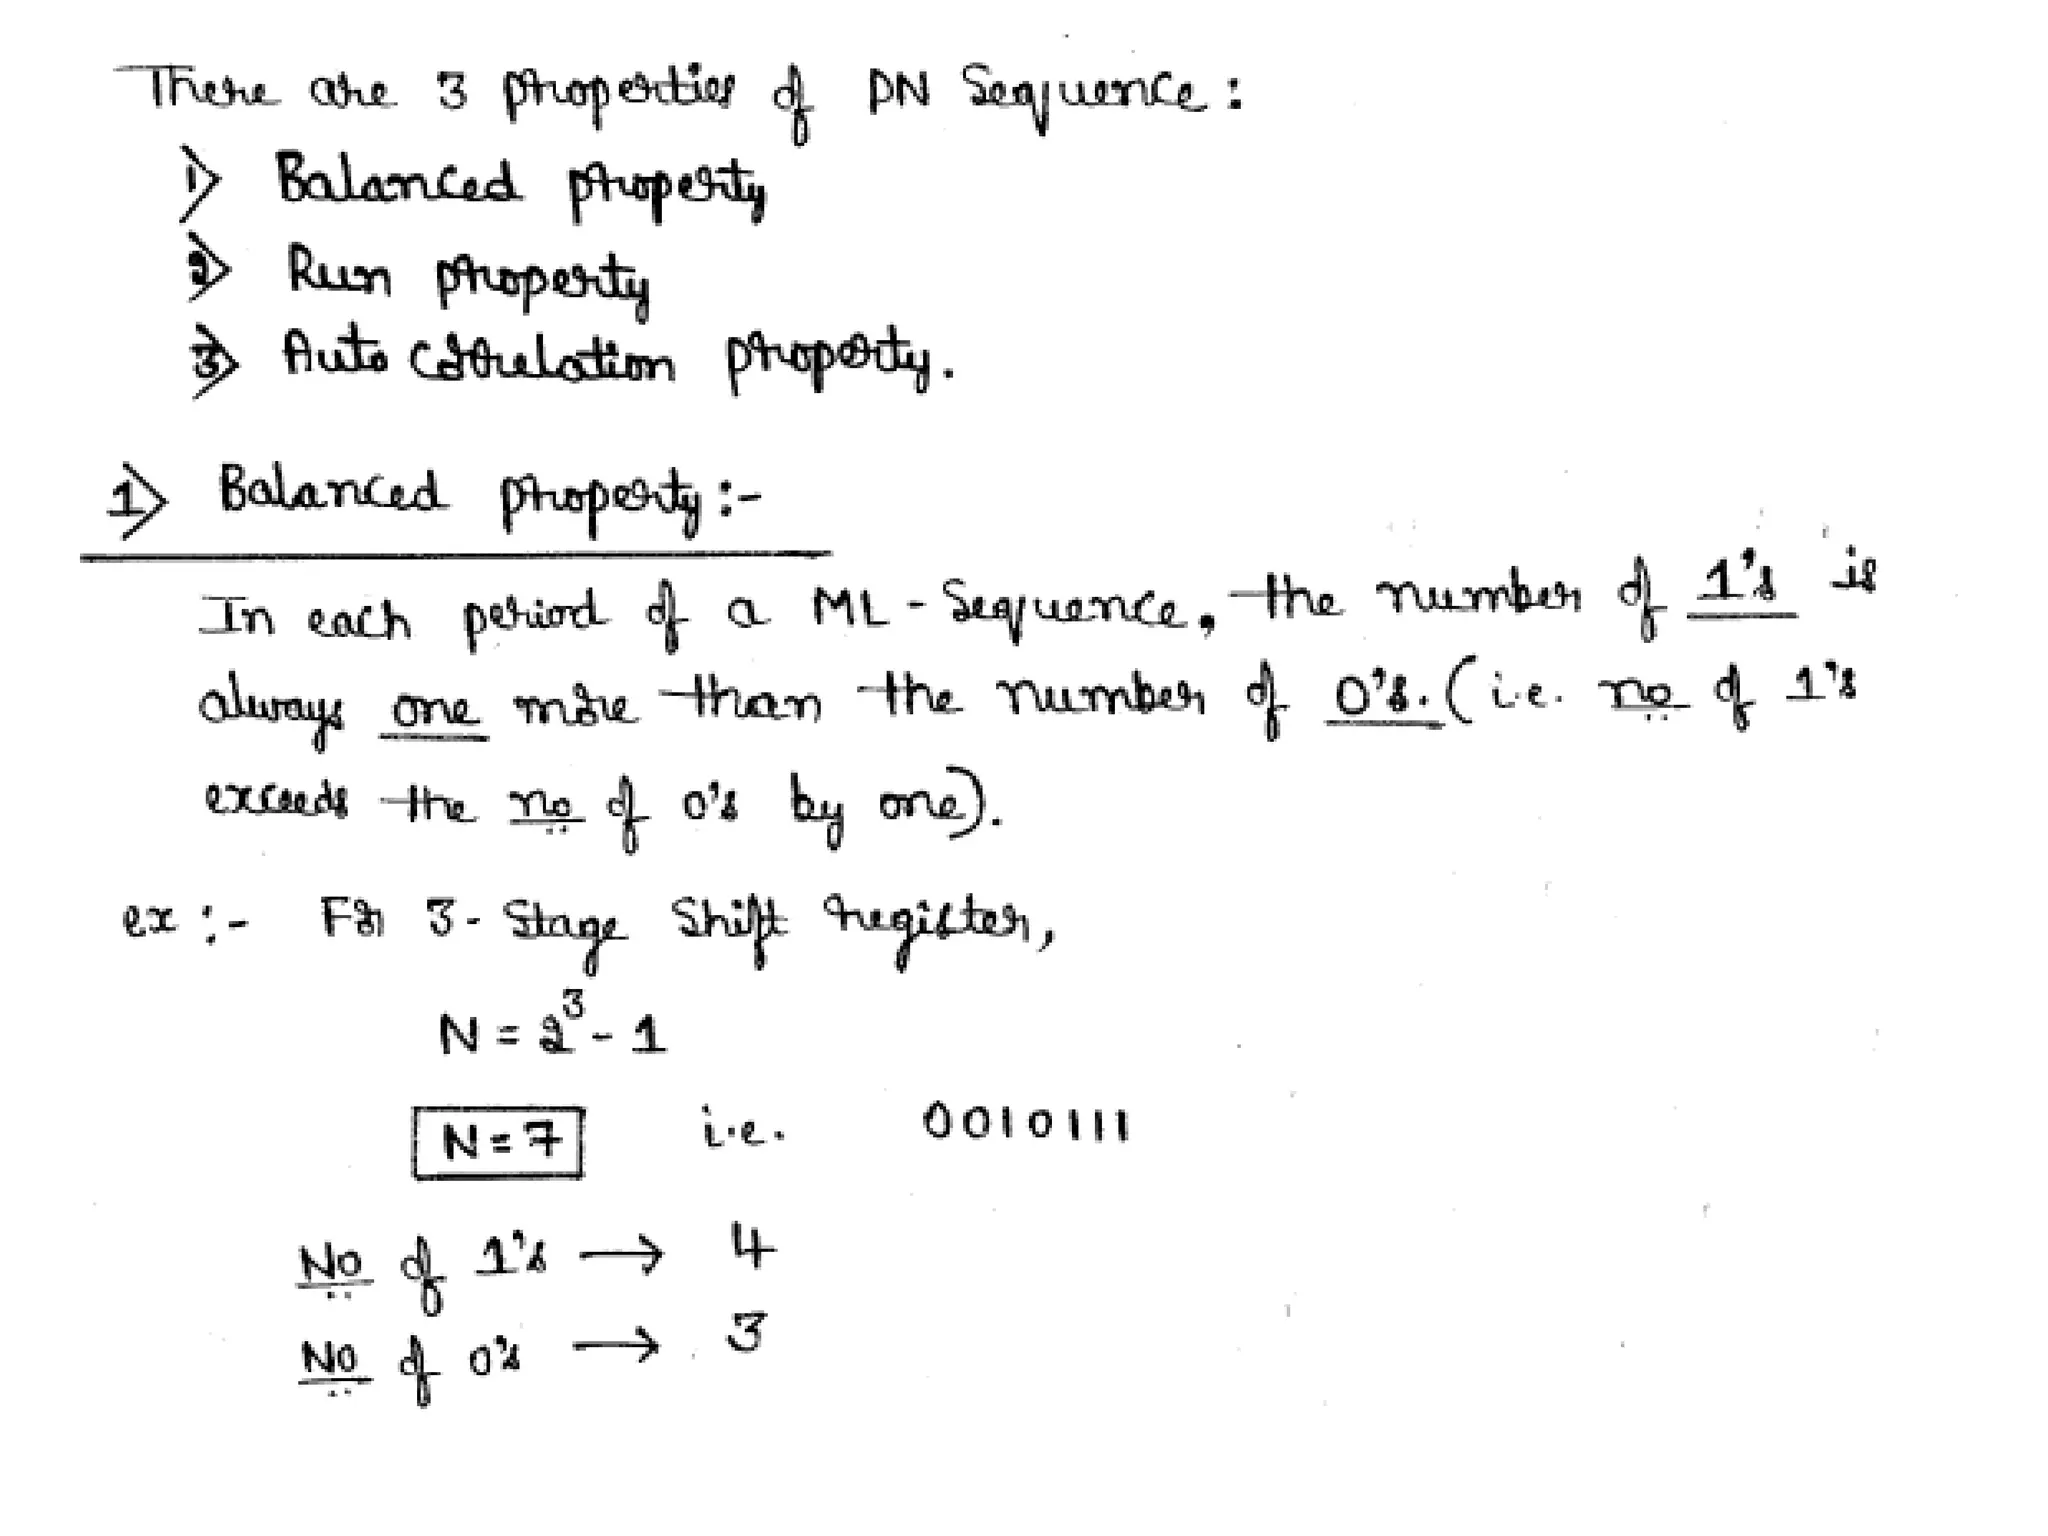 There are 3 properties of PN Sequence:
1> Balanced property
2> Run property
3> Auto correlation property.
1> Balanced property:-
In each period of a ML-Sequence, the number of 1's is
always one more than the number of 0's. (i.e. no of 1's
exceeds the no of 0's by one).
ex:- For 3-Stage Shift register,
N = 2³ - 1
N = 7 i.e. 0010111
No of 1's → 4
No of 0's → 3